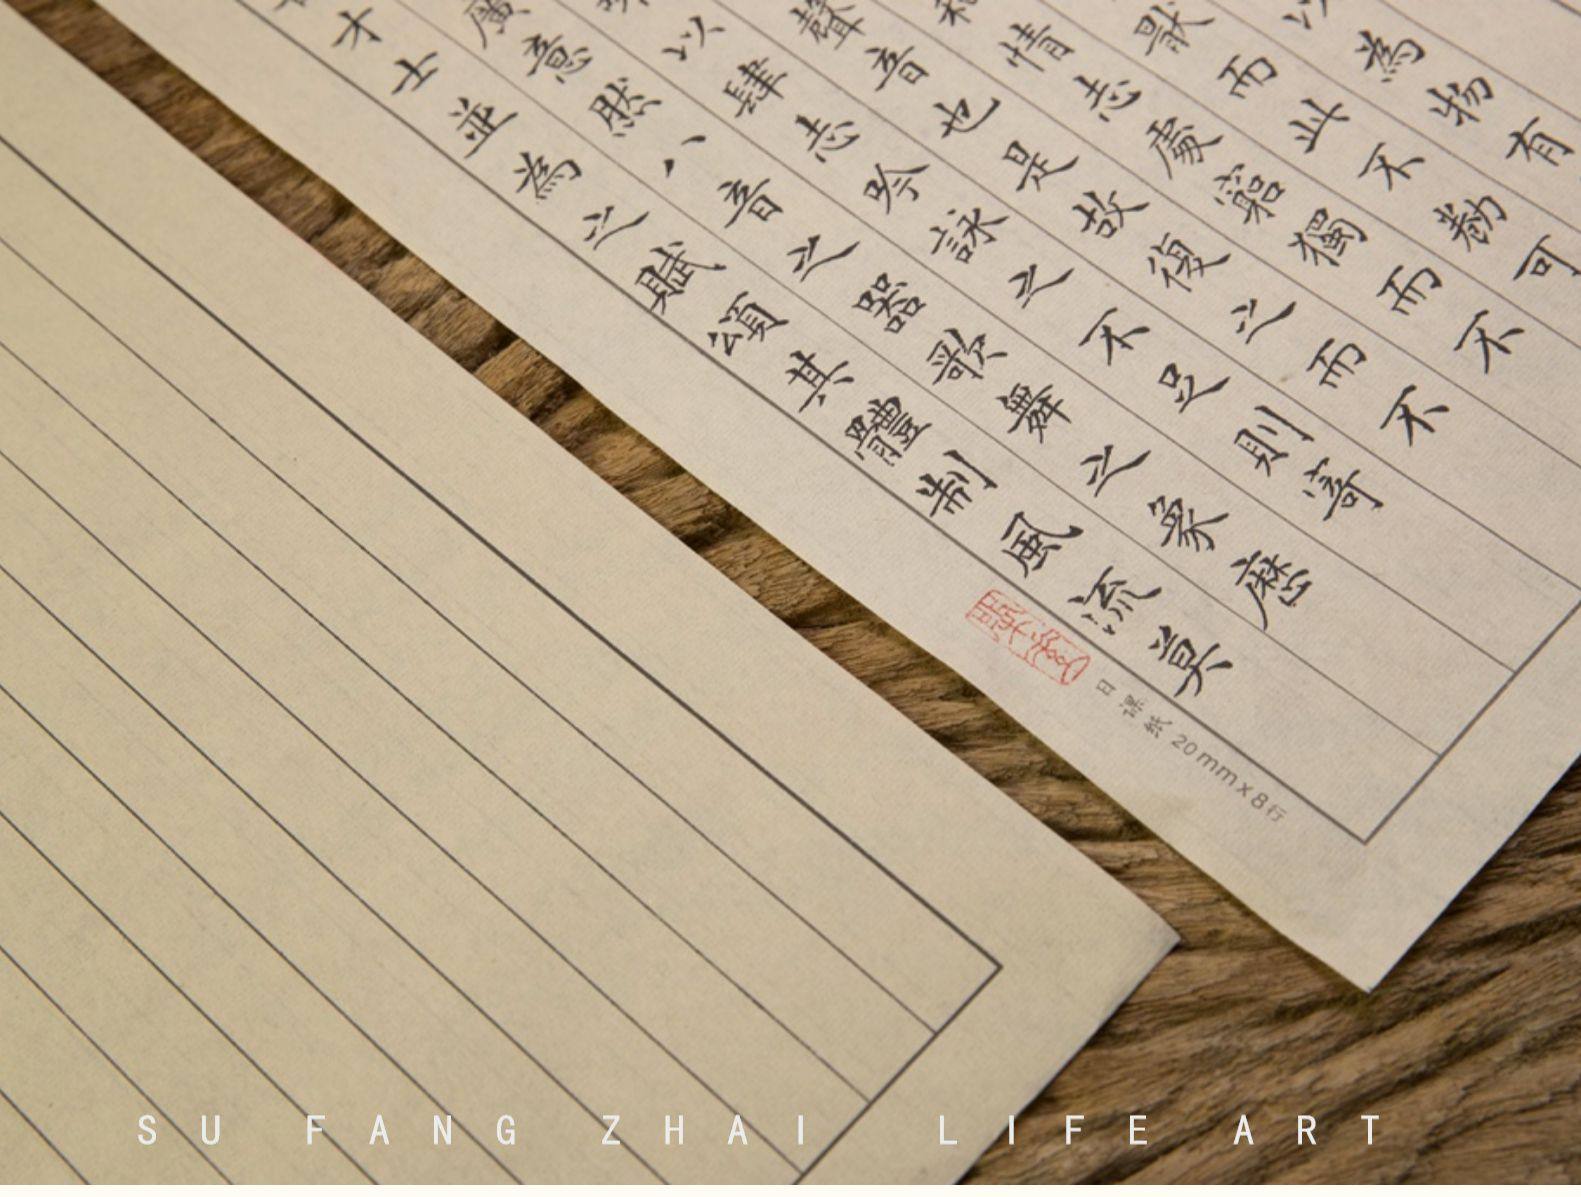 以為物有
猒而此不勌可
和情志處窮獨而不
聲音也是故復之而不
以肆志吟詠之不足則寄
廣意然八音之器歌舞之象歷
才士並為之賦頌其體制風流莫
日课纸 20mm×8行
SU FANG ZHAI LIFE ART